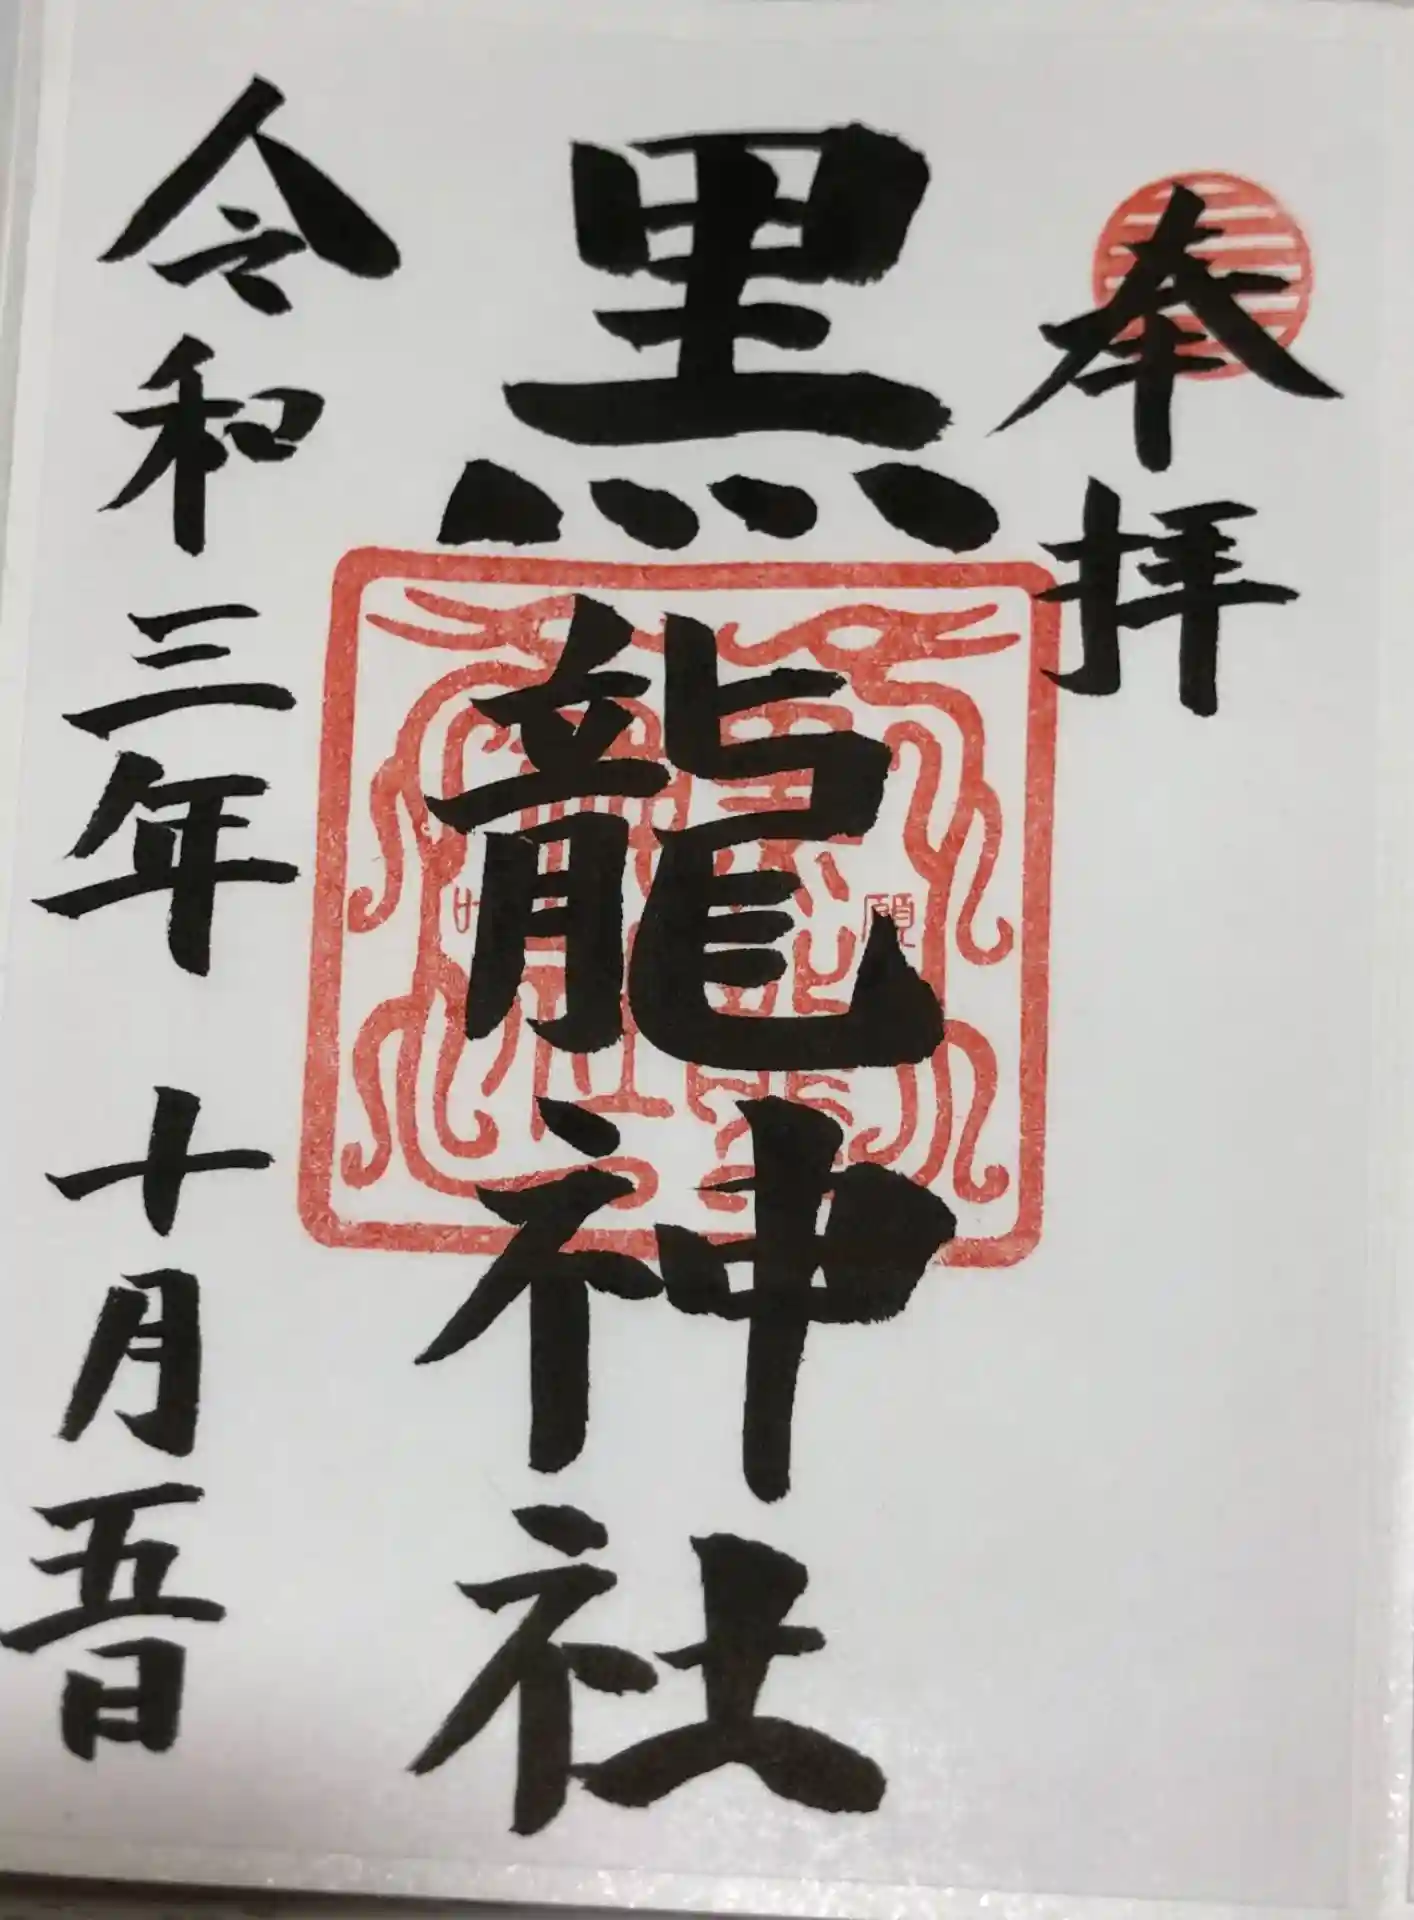 奉拝
黒龍神社
令和三年 十月五日
願
叶